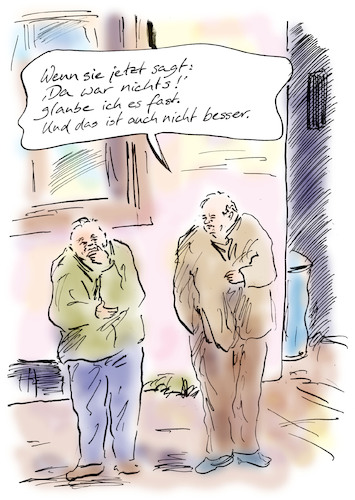 Wenn sie jetzt sagt:
'Da war nichts!'
glaube ich es fast.
Und das ist auch nicht besser.